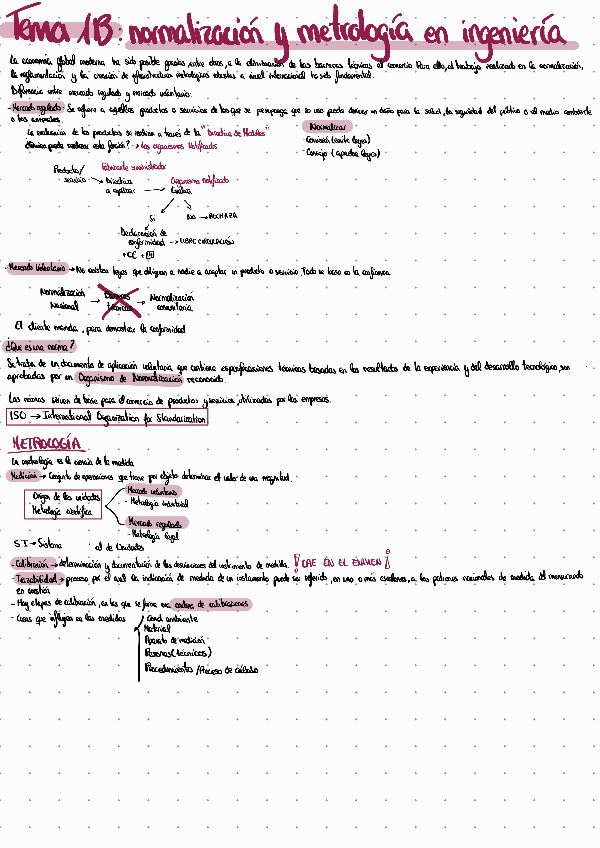 Tema 1B: normalización y metrología en ingeniería
La economía global moderna ha sido posible gracias, entre otras, a la eliminación de las barreras técnicas al comercio. Para ello, el trabajo realizado en la normalización,
la reglamentación y la creación de infraestructura metrológica robustas a nivel internacional ha sido fundamental.
Diferencia entre mercado regulado y mercado voluntario:
- Mercado regulado: Se refiere a aquellos productos o servicios de los que se presuponga que su uso puede derivar un daño para la salud, la seguridad del público o el medio ambiente
o los
La evaluación de los productos se realiza a través de la "Directiva de Medidas"
¿Quién puede realizar esta función? → Los organismos Notificados
Normalizar
- Comisión (emite leyes)
- Consejo (aprueba leyes)
Producto/
servicio → Directiva
a aplicar
Fabricante suministrador
Organismo notificado
→ Evalua
Si
No → RECHAZA
Declaración de
conformidad → LIBRE CIRCULACIÓN
+ CE + M
- Mercado Voluntario → No existen leyes que obliguen a nadie a aceptar un producto o servicio. Todo se basa en la confianza.
Normalización
Nacional → Barreras
técnicas → Normalización
comunitaria
El cliente manda, para demostrar la conformidad
¿Que es una norma?
Se trata de un documento de aplicación voluntaria que contiene especificaciones técnicas basadas en los resultados de la experiencia y del desarrollo tecnológico, son
aprobadas por un Organismo de Normalización reconocido.
Las normas sirven de base para el comercio de productos y servicios, utilizadas por las empresas.
ISO → International Organization for Standarization
METROLOGÍA
La metrología es la ciencia de la medida
Medición → Conjunto de operaciones que tiene por objeto determinar el valor de una magnitud.
Origen de las unidades
Metrología científica
Mercado voluntario
- Metrología industrial
Mercado regulado
- Metrología legal
SI → Sistema al de Unidades
- Calibración → determinación y documentación de las desviaciones del instrumento de medida. ¡CAE EN EL EXAMEN!
- Trazabilidad → proceso por el cual la indicación de medida de un instrumento puede ser referida, en uno o más escalones, a los patrones nacionales de medida del mensurando
en cuestión
- Hay etapas de calibración, en las que se forma una cadena de calibraciones
- Cosas que influyen en las medidas
Cond. ambiente
Material
Aparato de medición
Personas (técnicos)
Procedimientos / Proceso de cálculo